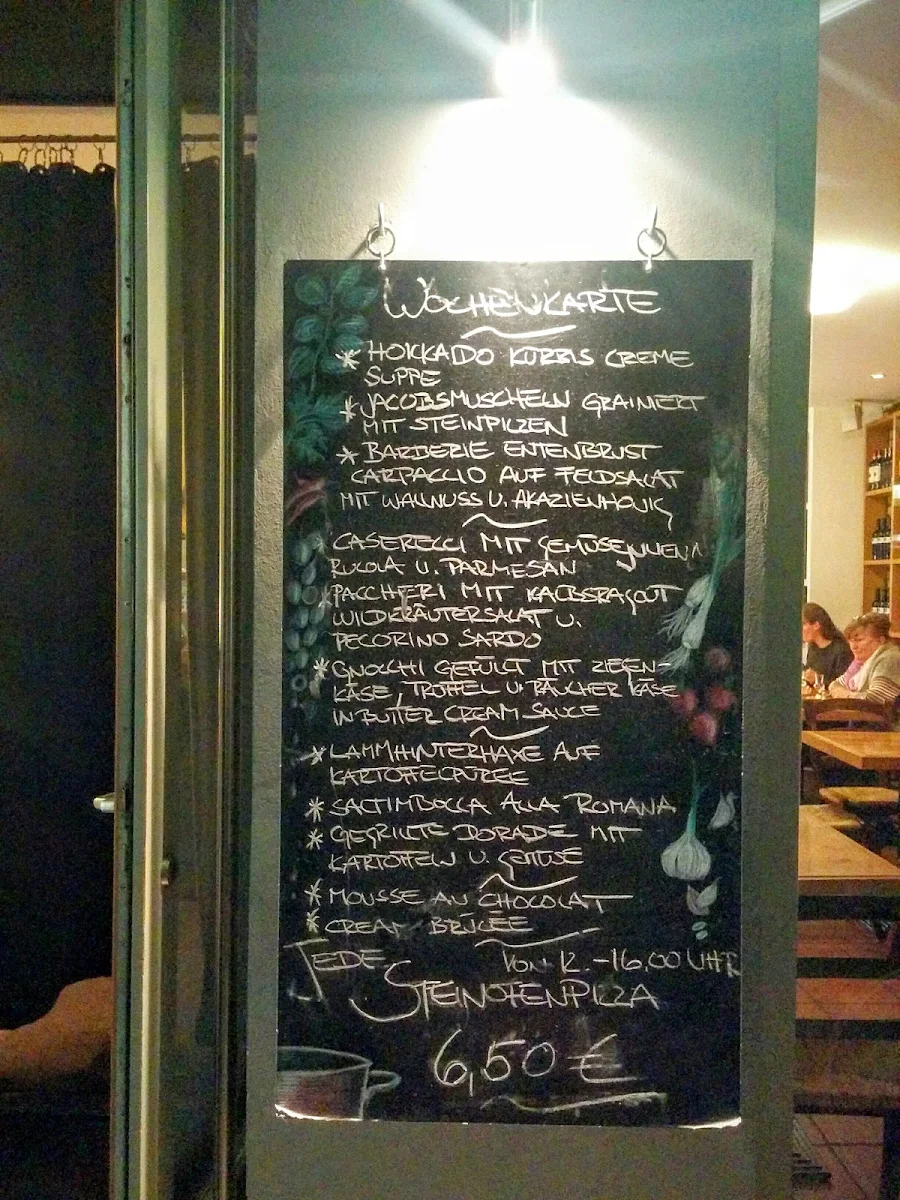 WOCHENKARTE
* HOKKAIDO KÜRBIS CREME
SUPPE
* JACOBSMUSCHELN GRAINIERT
MIT STEINPILZEN
* BARBERIE ENTENBRUST
CARPACCIO AUF FELDSALAT
MIT WALLNUSS U. AKAZIENHONIG
CASERECCI MIT GEMÜSEJULIENN
RUCOLA U. PARMESAN
* PACCHERI MIT KALBSRAGOUT
WILDKRÄUTERSALAT U.
PECORINO SARDO
* GNOCCHI GEFÜLLT MIT ZIEGEN-
KÄSE, TRÜFFEL U. RÄUCHER KÄSE
IN BUTTER CREAM SAUCE
* LAMMHINTERHAXE AUF
KARTOFFELPÜREE
* SALTIMBOCCA ALLA ROMANA
* GEGRILLTE DORADE MIT
KARTOFFELN U. GEMÜSE
* MOUSSE AU CHOCOLAT
* CREAM BRÛLÉE
JEDE VON 12.-16,00 UHR
STEINOFENPIZZA
6,50 €